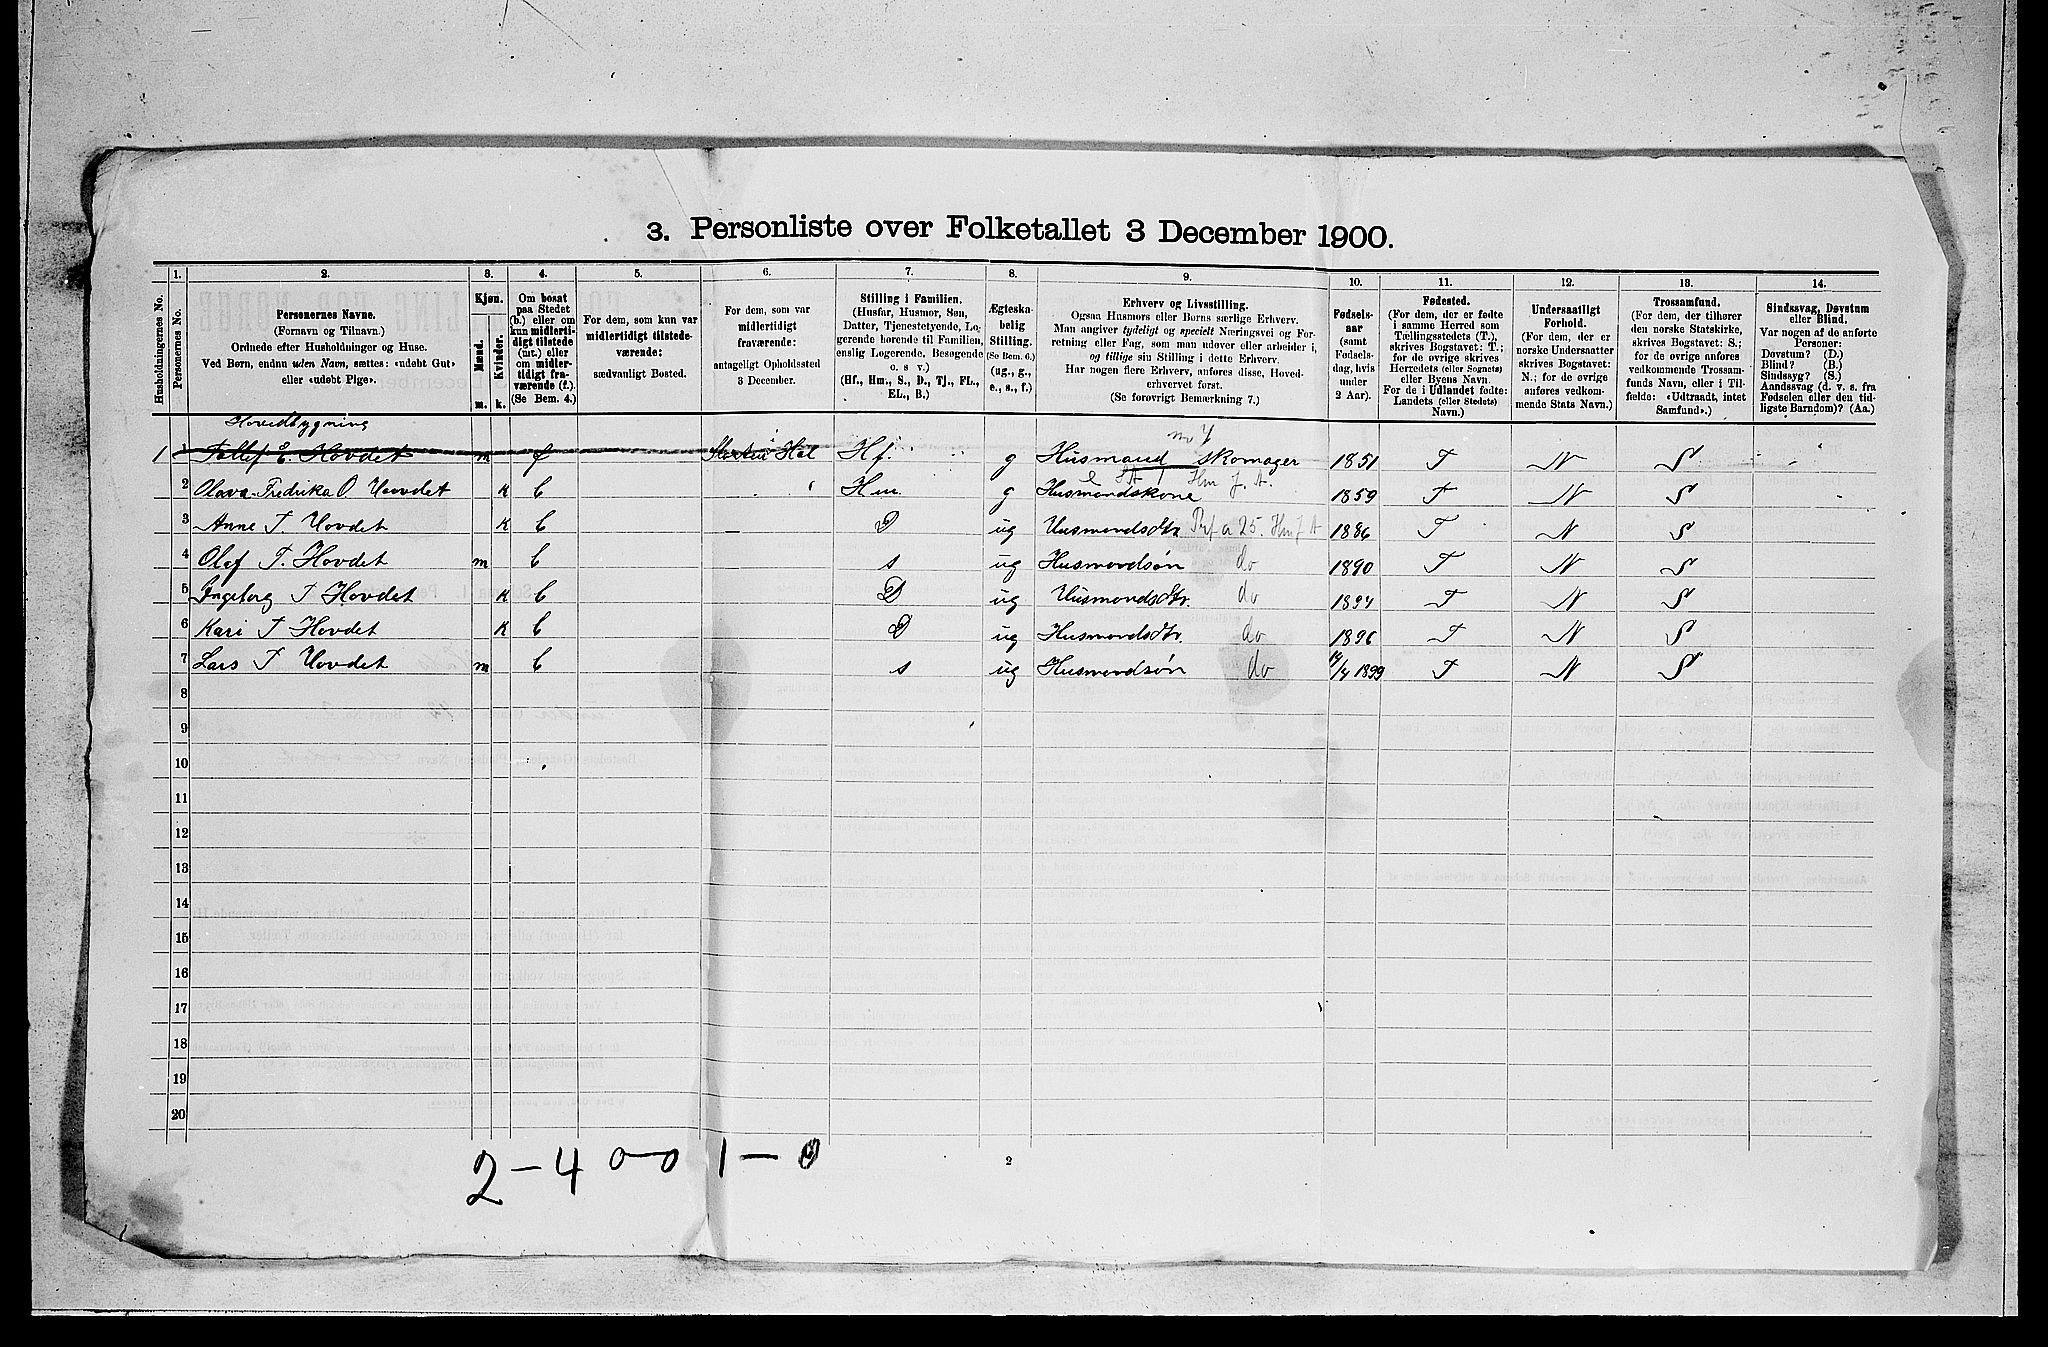 3. Personliste over Folketallet 3 December 1900.
1. 2. 3. 4. 5. 6. 7. 8. 9. 10. 11. 12. 13. 14.
Husholdningernes No.
Personernes No.
Personernes Navne.
(Fornavn og Tilnavn.)
Ordnede efter Husholdninger og Huse.
Ved Børn, endnu uden Navn, sættes: «udøbt Gut»
eller «udøbt Pige».
Kjøn.
Mænd.
Kvinder.
m. k.
Om bosat
paa Stedet
(b.) eller om
kun midlerti-
digt tilstede
(mt.) eller
om midler-
tidigt fra-
værende (f.).
(Se Bem. 4.)
For dem, som kun var
midlertidigt tilstede-
værende:
sædvanligt Bosted.
For dem, som var
midlertidigt
fraværende:
antageligt Opholdssted
3 December.
Stilling i Familien.
(Husfar, Husmor, Søn,
Datter, Tjenestetyende, Lo-
gerende hørende til Familien,
enslig Logerende, Besøgende
o. s. v.)
(Hf., Hm., S., D., Tj., FL.,
EL., B.)
Ægteska-
belig
Stilling.
(Se Bem. 6.)
(ug., g.,
e., s., f.)
Erhverv og Livsstilling.
Ogsaa Husmors eller Børns særlige Erhverv.
Man angiver tydeligt og specielt Næringsvei og For-
retning eller Fag, som man udøver eller arbeider i,
og tillige sin Stilling i dette Erhverv.
Har nogen flere Erhverv, anføres disse, Hoved-
erhvervet først.
(Se forøvrigt Bemærkning 7.)
Fødsels-
aar
(samt
Fødsels-
dag, hvis
under
2 Aar).
Fødested.
(For dem, der er fødte
i samme Herred som
Tællingsstedets (T.),
skrives Bogstavet: T.;
for de øvrige skrives
Herredets (eller Sognets)
eller Byens Navn.
For de i Udlandet fødte:
Landets (eller Stedets)
Navn.)
Undersaatligt
Forhold.
(For dem, der er
norske Undersaatter
skrives Bogstavet:
N.; for de øvrige
anføres vedkom-
mende Stats Navn.)
Trossamfund.
(For dem, der tilhører
den norske Statskirke,
skrives Bogstavet: S.;
for de øvrige anføres
vedkommende Trossam-
funds Navn, eller i Til-
fælde: «Udtraadt, intet
Samfund».)
Sindssvag, Døvstum
eller Blind.
Var nogen af de anførte
Personer:
Døvstum? (D.)
Blind? (B.)
Sindssyg? (S.)
Aandssvag (d. v. s. fra
Fødselen eller den tid-
ligste Barndom)? (Aa.)
Hovedbygning
1 1 Tallef E. Hovdet m f Hf. g Husmand skomager 1851 T N S
2 Olava Fredrika O. Hovdet k b Hm. g Husmandskone 1859 T N S
3 Anne T Hovdet k b D ug Husmandsdtr. 1886 T N S
4 Olef T. Hovdet m b s ug Husmandsøn do 1890 T N S
5 Ingeborg T Hovdet k b D ug Husmandsdtr. do 1894 T N S
6 Kari T Hovdet k b D ug Husmandsdtr. do 1896 T N S
7 Lars T Hovdet m b s ug Husmandsøn do 14/4 1899 T N S
8
9
10
11
12
13
14
15
16
17
18
19
20
2 – 4 0 – 0 1 – 0
2